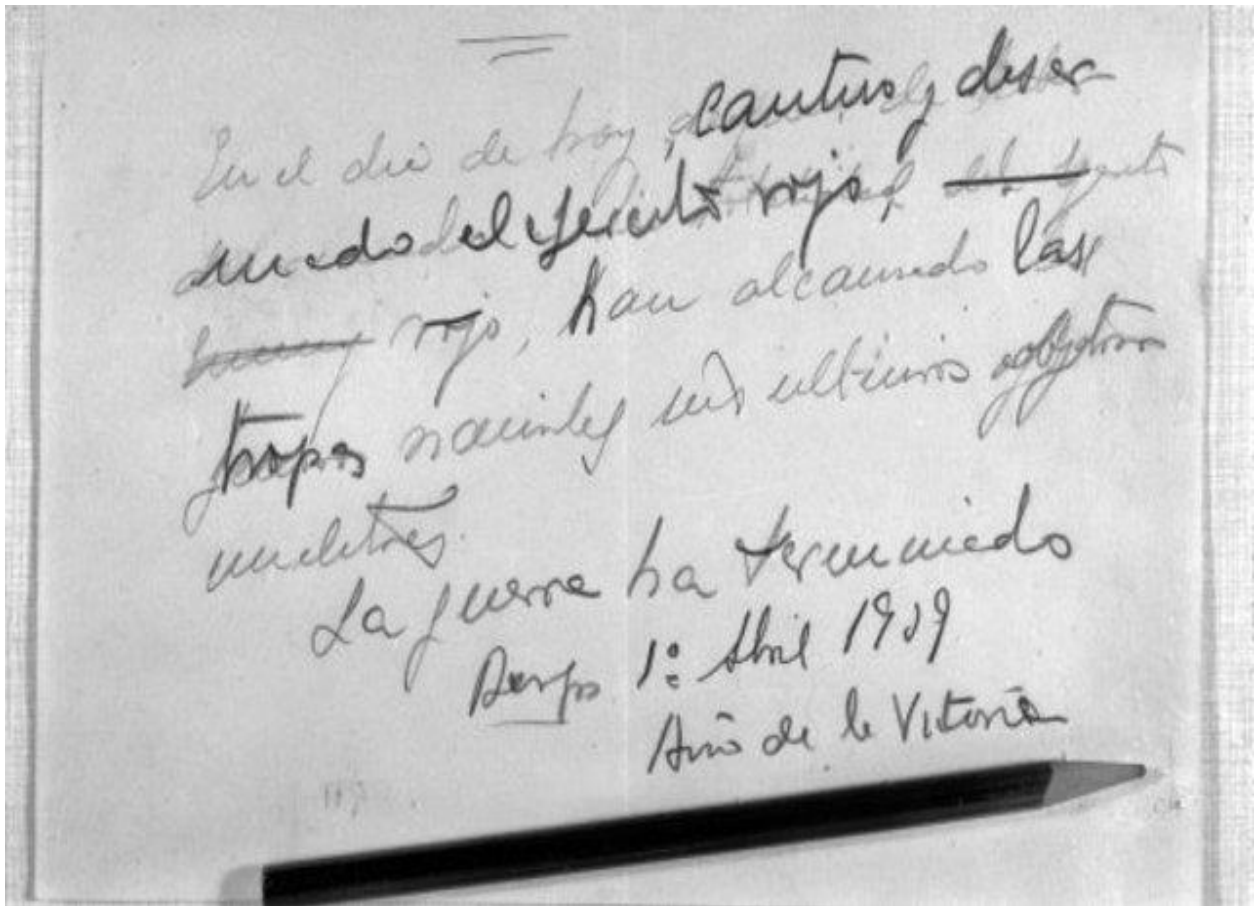 En el dia de hoy, cautivo y desar
mado el ejercito rojo,
rojo, han alcanzado las
tropas nacionales sus ultimos objetivos
militares.
La guerra ha terminado
Burgos 1º Abril 1939
Año de la Victoria